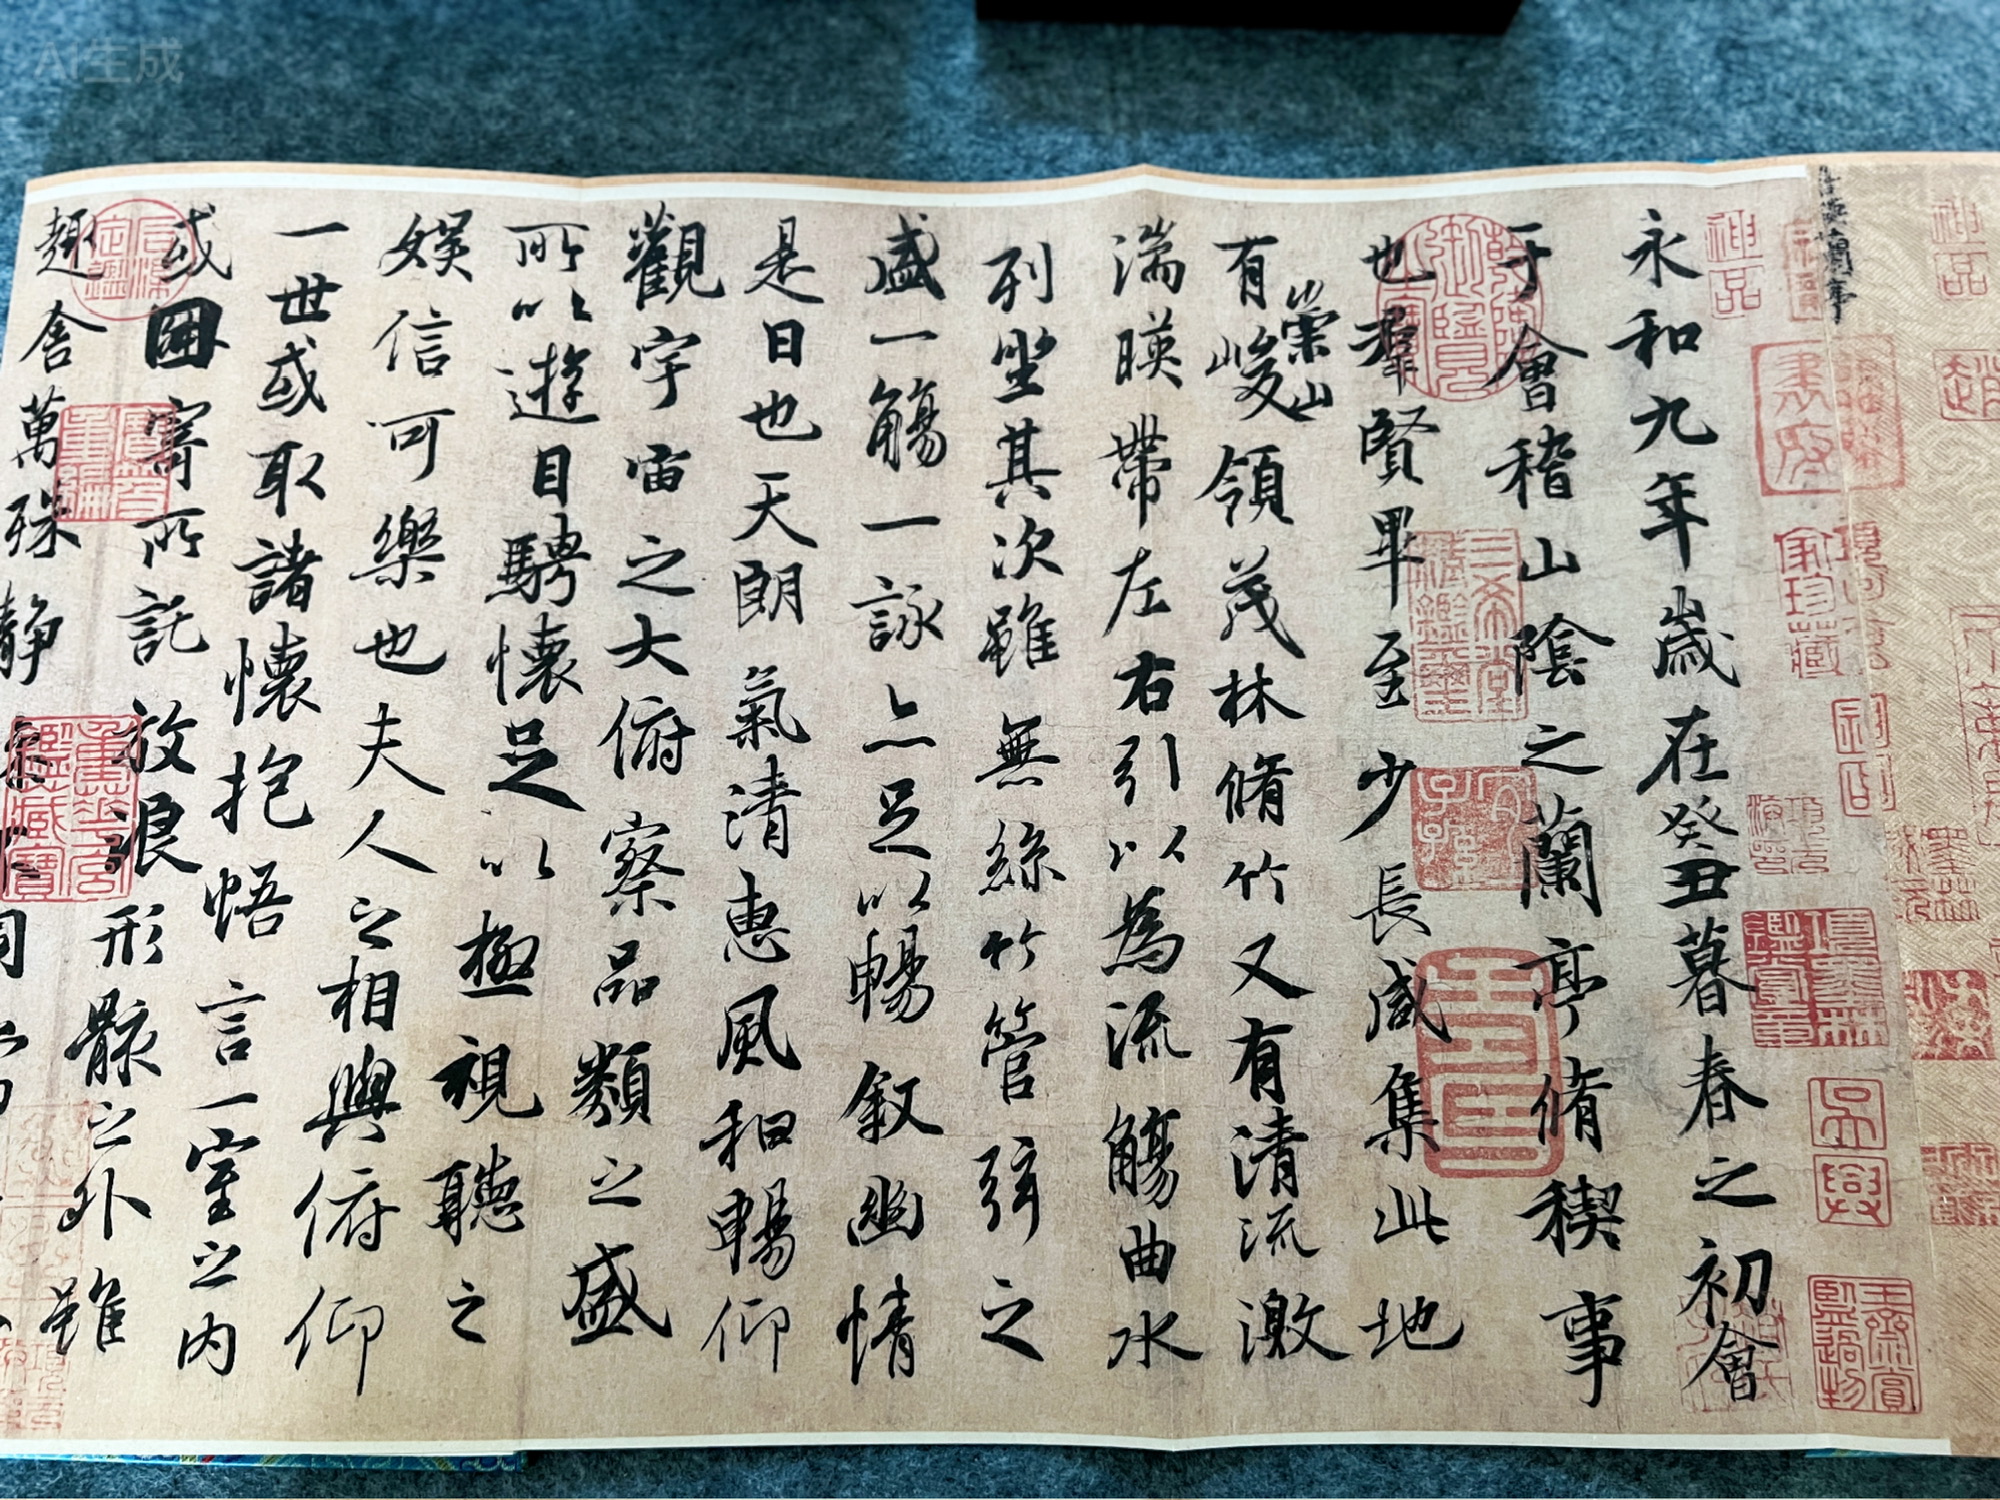 永和九年歲在癸丑暮春之初會
于會稽山陰之蘭亭脩稧事
也羣賢畢至少長咸集此地
有峻領茂林脩竹又有清流激
崇山
湍暎帶左右引以為流觴曲水
列坐其次雖無絲竹管弦之
盛一觴一詠亦足以暢敘幽情
是日也天朗氣清惠風和暢仰
觀宇宙之大俯察品類之盛
所以遊目騁懷足以極視聽之
娛信可樂也夫人之相與俯仰
一世或取諸懷抱悟言一室之內
或因寄所託放浪形骸之外雖
趣舍萬殊靜
神品
書府
家珍藏
三希堂精鑑璽
子孫
AI生成